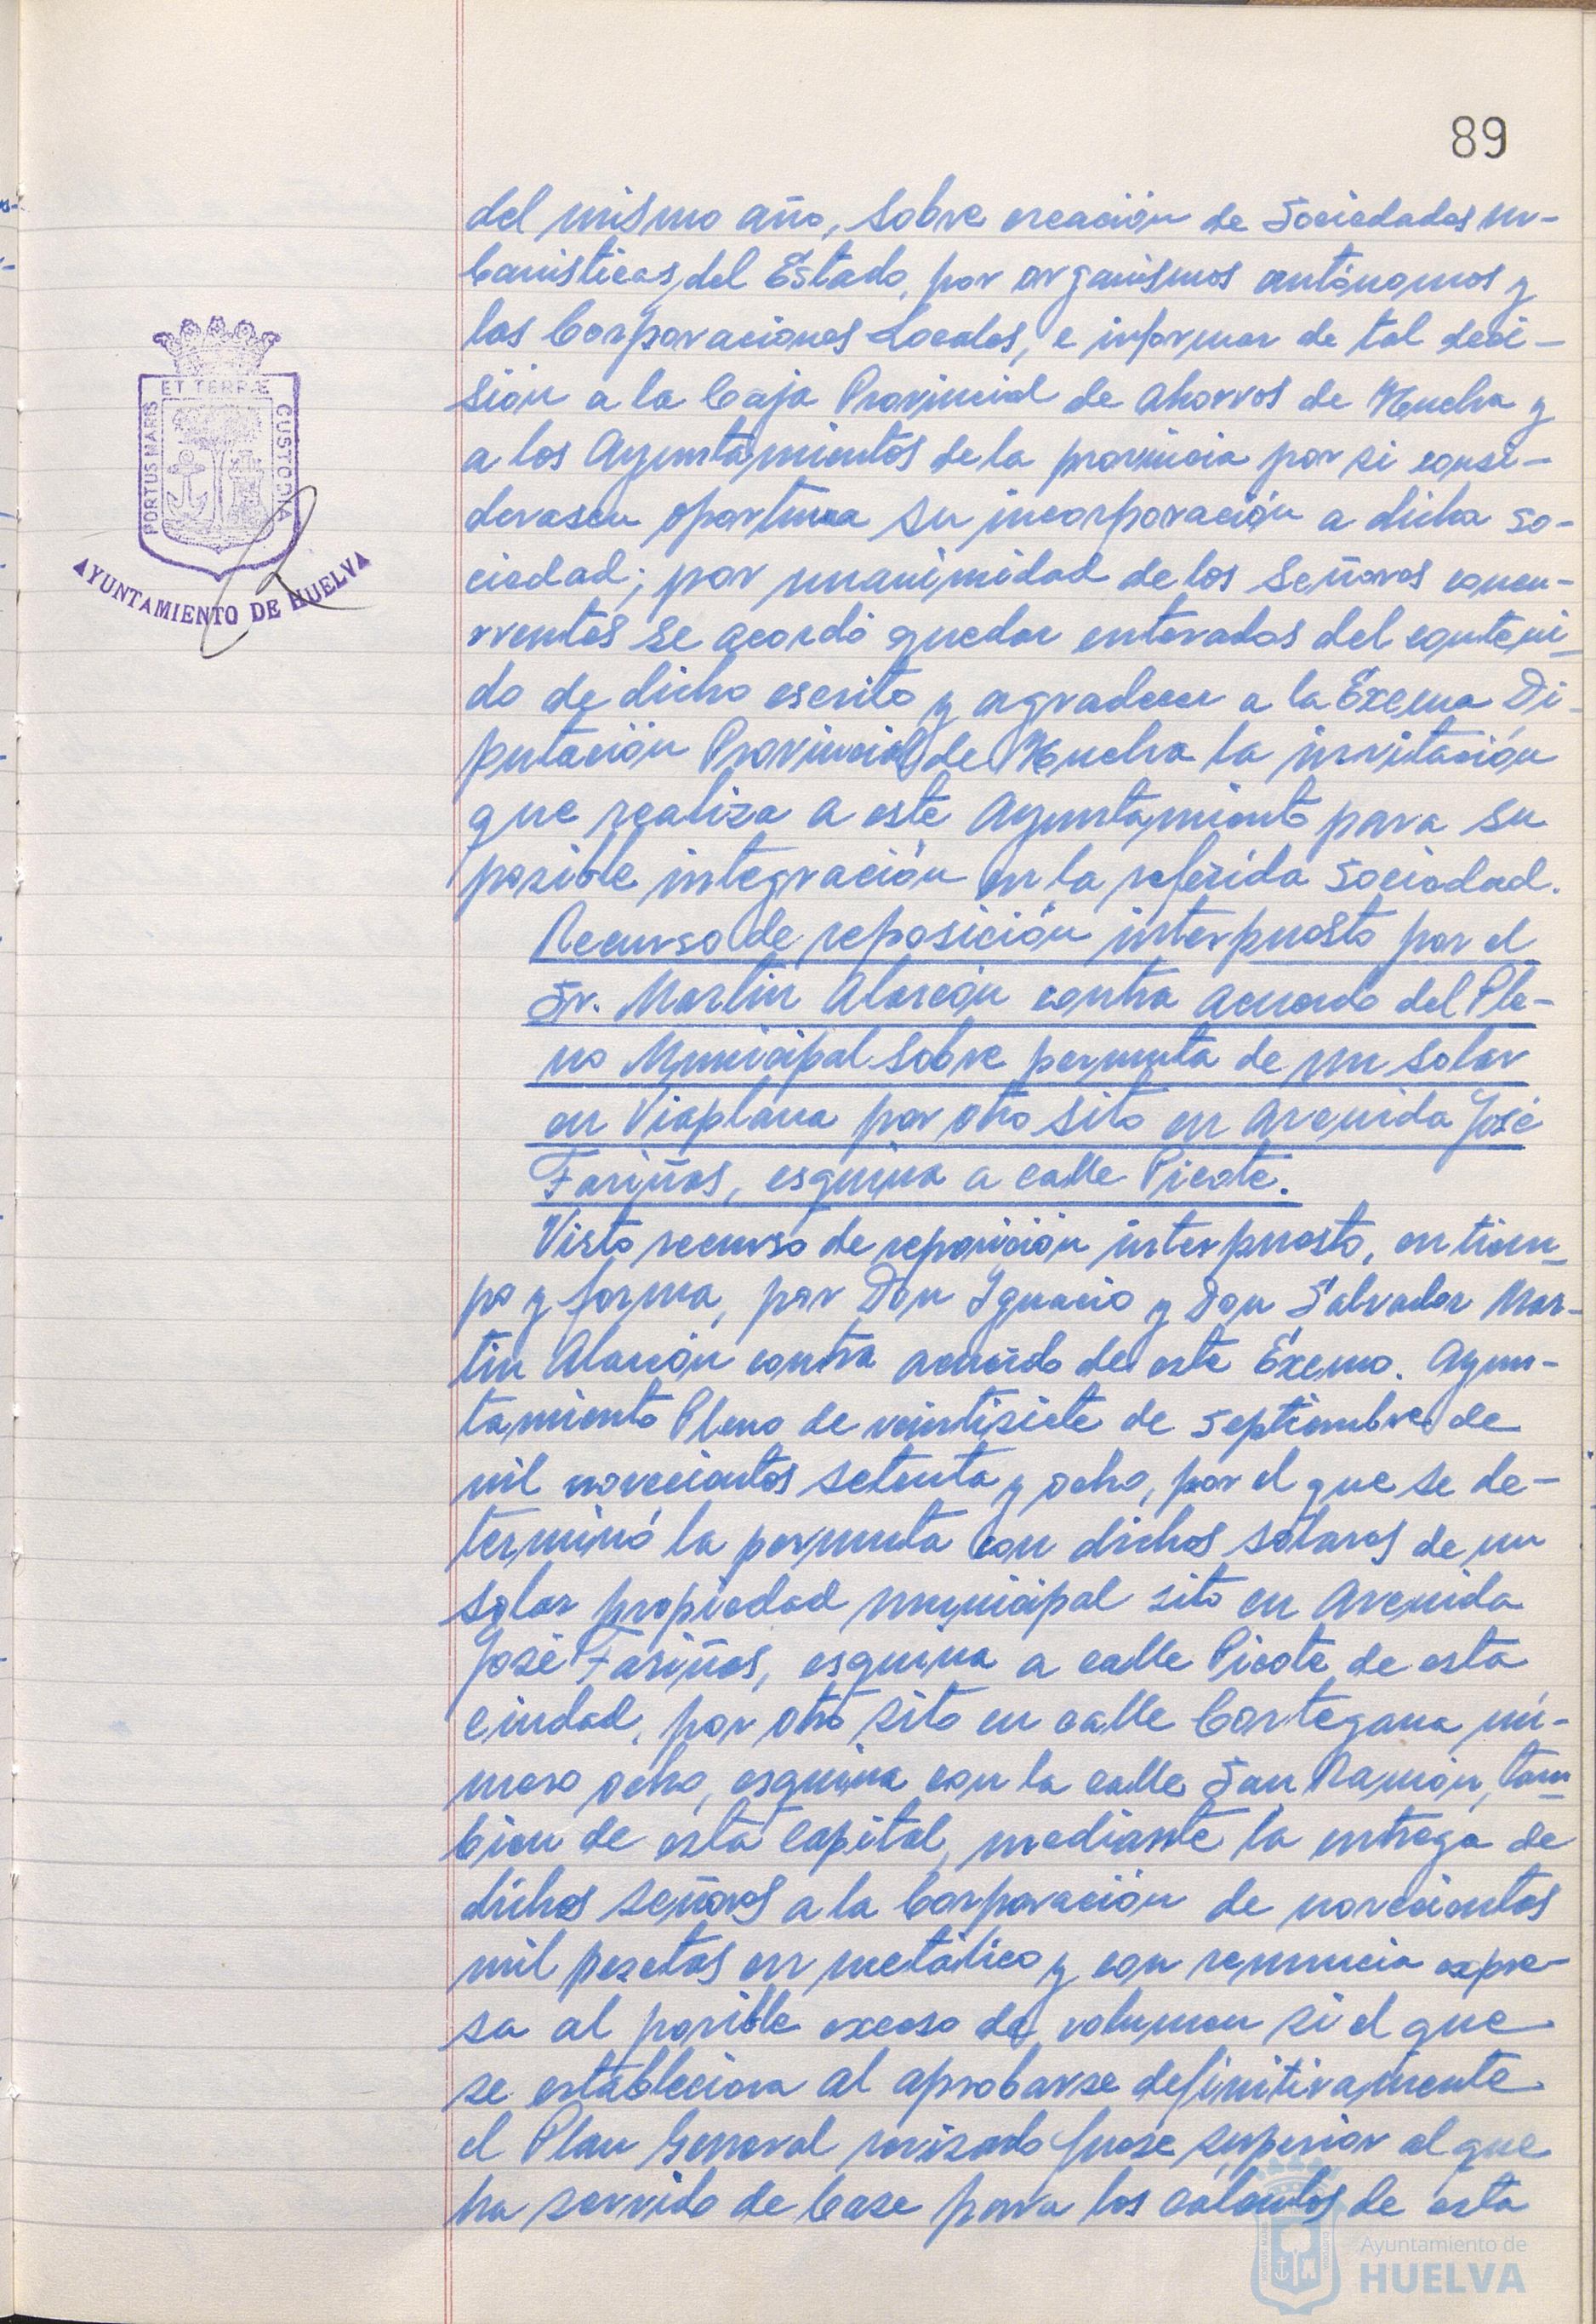 89
del mismo año, sobre creación de Sociedades ur-
banísticas del Estado, por organismos autónomos y
las Corporaciones Locales, e informar de tal deci-
sión a la Caja Provincial de Ahorros de Huelva y
a los Ayuntamientos de la provincia por si consi-
derasen oportuna su incorporación a dicha so-
ciedad; por unanimidad de los señores concu-
rrentes se acordó quedar enterados del conteni-
do de dicho escrito y agradecer a la Excma Di-
putación Provincial de Huelva la invitación
que realiza a este Ayuntamiento para su
posible integración en la referida Sociedad.
Recurso de reposición interpuesto por el
Sr. Martín Alarcón contra acuerdo del Ple-
no Municipal sobre permuta de un solar
en Viaplana por otro sito en Avenida José
Fariñas, esquina a calle Picote.
Visto recurso de reposición interpuesto, en tiem-
po y forma, por Don Ignacio y Don Salvador Mar-
tín Alarcón contra acuerdo de este Excmo. Ayun-
tamiento Pleno de veintisiete de septiembre de
mil novecientos setenta y ocho, por el que se de-
terminó la permuta con dichos solares de un
solar propiedad municipal sito en Avenida
José Fariñas, esquina a calle Picote de esta
ciudad, por otro sito en calle Cortegana nú-
mero ocho, esquina con la calle San Ramón, tam-
bien de esta capital, mediante la entrega de
dichos señores a la Corporación de novecientos
mil pesetas en metálico y con renuncia expre-
sa al posible exceso de volumen si el que
se estableciera al aprobarse definitivamente
el Plan General revisado fuese superior al que
ha servido de base para los cálculos de esta
PORTUS MARIS
ET TERRÆ
CUSTODIA
AYUNTAMIENTO DE HUELVA
Ayuntamiento de
HUELVA